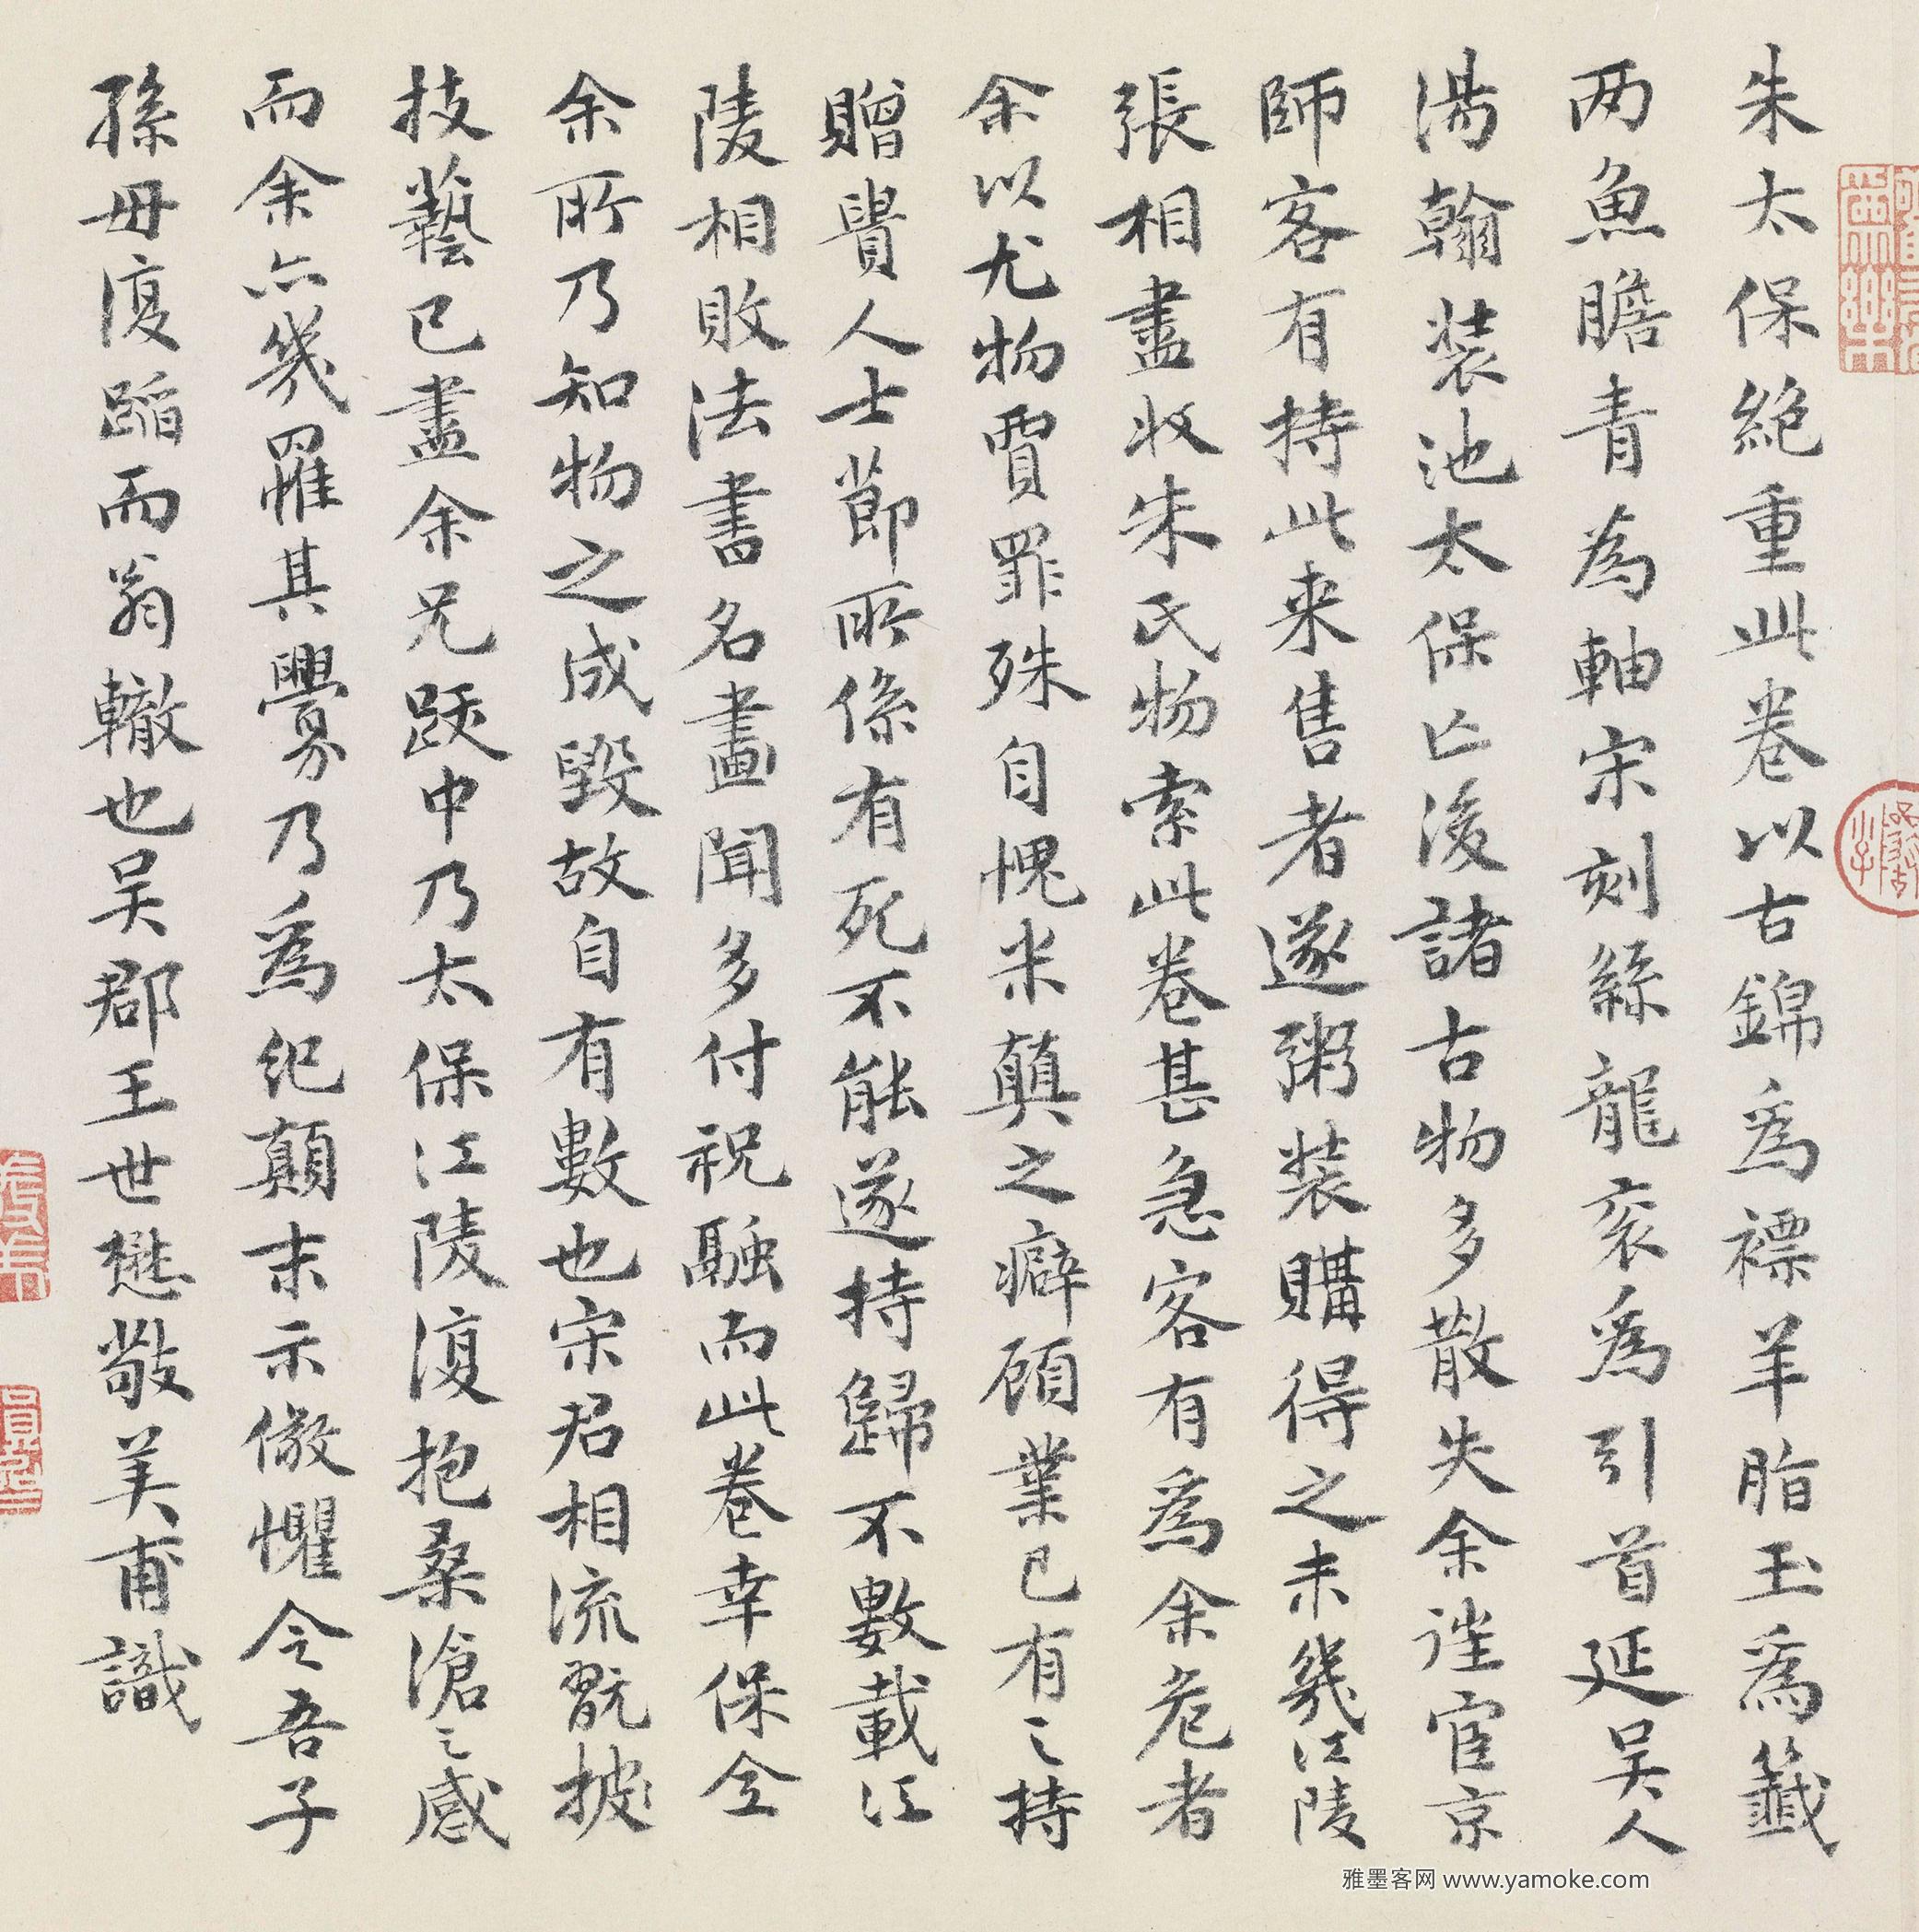 朱太保絶重此卷以古錦為褾羊脂玉為籤
两魚膽青為軸宋刻絲龍衮為引首延吳人
湯翰裝池太保亡後諸古物多散失余往宦京
師客有持此来售者遂粥裝購得之未幾江陵
張相盡收朱氏物索此卷甚急客有為余危者
余以尤物賈罪殊自愧米顛之癖顧業已有之持
贈貴人士節所係有死不能遂持歸不數載江
陵相敗法書名畫聞多付祝融而此卷幸保全
余所乃知物之成毀故自有數也宋君相流翫披
技藝已盡余兄跋中乃太保江陵復抱桑滄之感
而余亦幾罹其釁乃為紀顛末示儆懼令吾子
孫毋復蹈而翁轍也吳郡王世懋敬美甫識
雅墨客网 www.yamoke.com